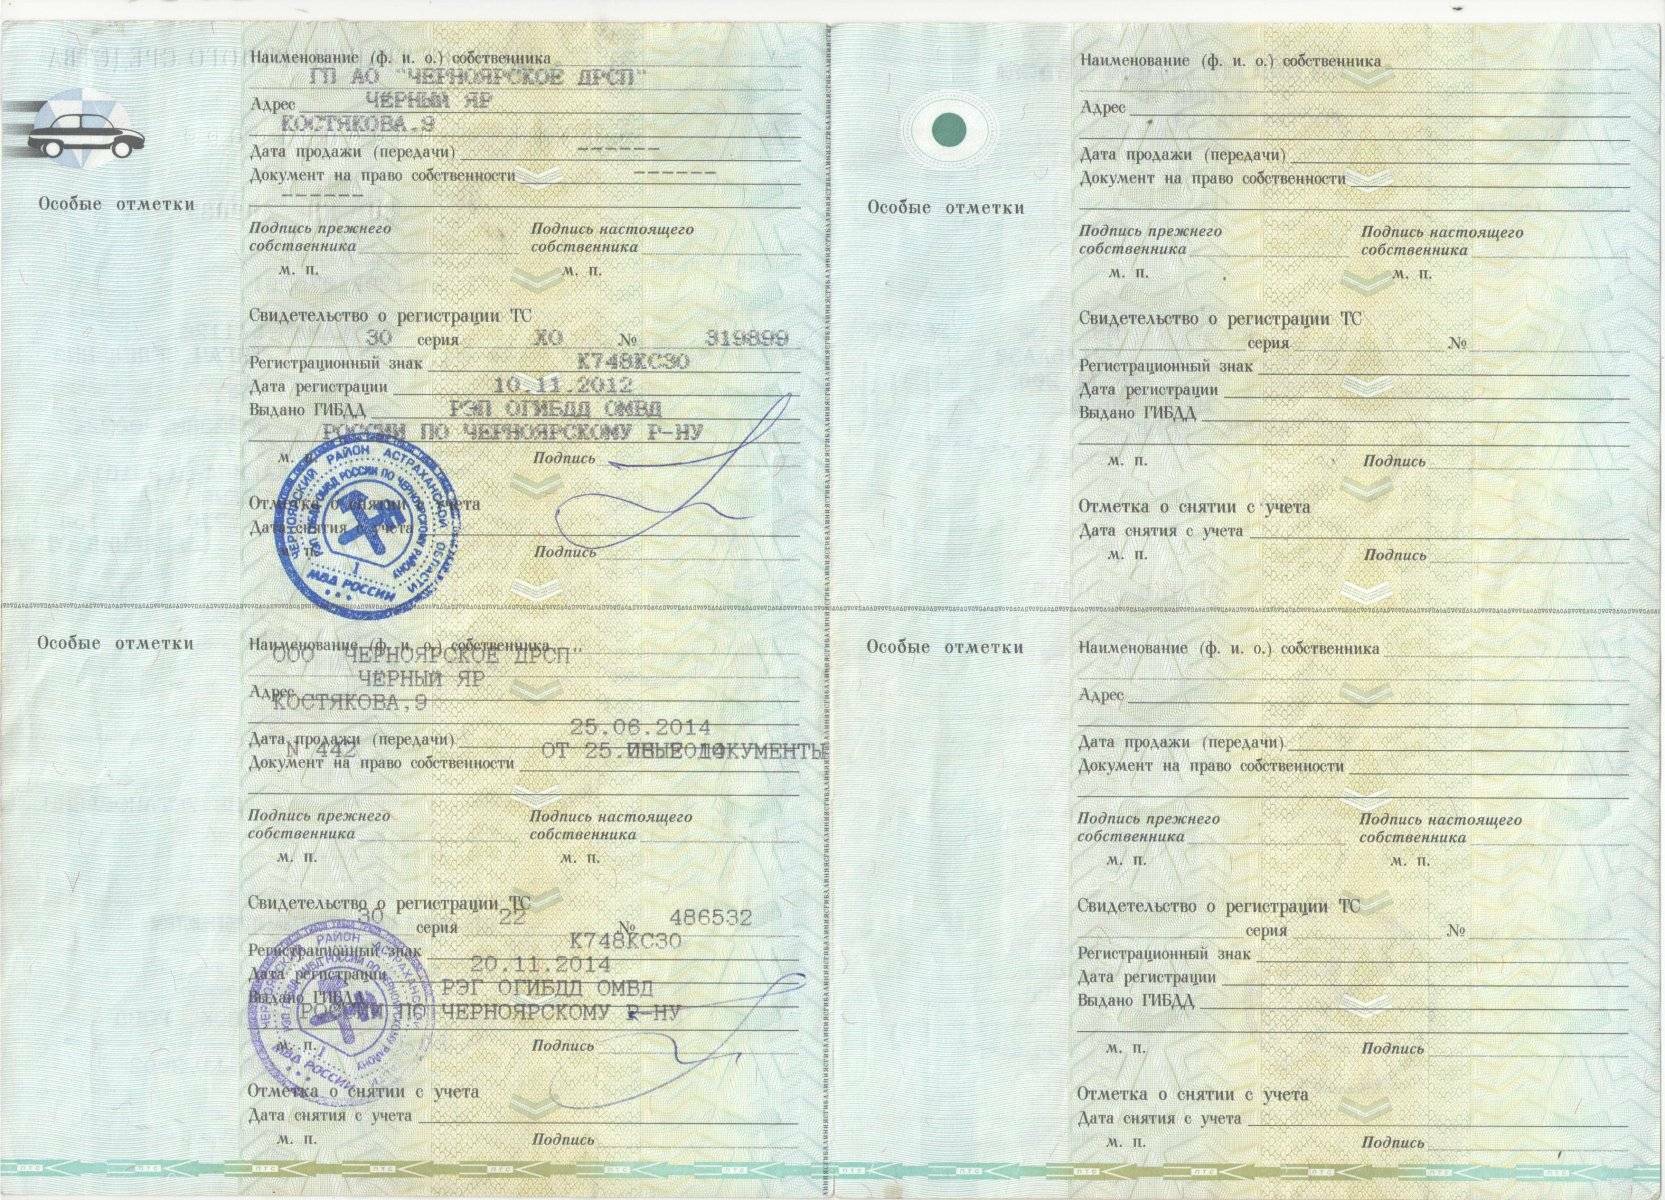 Особые отметки
Наименование (ф. и. о.) собственника
ГП АО "ЧЕРНОЯРСКОЕ ДРСП"
Адрес ЧЕРНЫЙ ЯР
КОСТЯКОВА,9
Дата продажи (передачи) ------
Документ на право собственности ------
------
Подпись прежнего собственника
Подпись настоящего собственника
м. п. м. п.
Свидетельство о регистрации ТС
30 серия ХО № 319899
Регистрационный знак К748КС30
Дата регистрации 10.11.2012
Выдано ГИБДД РЭП ОГИБДД ОМВД
РОССИИ ПО ЧЕРНОЯРСКОМУ Р-НУ
м. п. Подпись
ЧЕРНОЯРСКИЙ РАЙОН АСТРАХАНСКОЙ ОБЛАСТИ
МВД РОССИИ
1
Отметка о снятии с учета
Дата снятия с учета
м. п. Подпись
Особые отметки
Наименование (ф. и. о.) собственника
ООО "ЧЕРНОЯРСКОЕ ДРСП"
ЧЕРНЫЙ ЯР
Адрес
КОСТЯКОВА,9
25.06.2014
Дата продажи (передачи)
N 442 ОТ 25. ДОКУМЕНТЫ
Документ на право собственности
Подпись прежнего собственника
Подпись настоящего собственника
м. п. м. п.
Свидетельство о регистрации ТС
30 серия 22 № 486532
К748КС30
Регистрационный знак
20.11.2014
Дата регистрации
РЭГ ОГИБДД ОМВД
Выдано ГИБДД
РОССИИ ПО ЧЕРНОЯРСКОМУ Р-НУ
м. п. Подпись
МВД РОССИИ
1
Отметка о снятии с учета
Дата снятия с учета
м. п. Подпись
Особые отметки
Наименование (ф. и. о.) собственника
Адрес
Дата продажи (передачи)
Документ на право собственности
Подпись прежнего собственника
Подпись настоящего собственника
м. п. м. п.
Свидетельство о регистрации ТС
серия №
Регистрационный знак
Дата регистрации
Выдано ГИБДД
м. п. Подпись
Отметка о снятии с учета
Дата снятия с учета
м. п. Подпись
Особые отметки
Наименование (ф. и. о.) собственника
Адрес
Дата продажи (передачи)
Документ на право собственности
Подпись прежнего собственника
Подпись настоящего собственника
м. п. м. п.
Свидетельство о регистрации ТС
серия №
Регистрационный знак
Дата регистрации
Выдано ГИБДД
м. п. Подпись
Отметка о снятии с учета
Дата снятия с учета
м. п. Подпись
ПТС ПТС ПТС ПТС ПТС ПТС ПТС ПТС ПТС ПТС ПТС ПТС ПТС